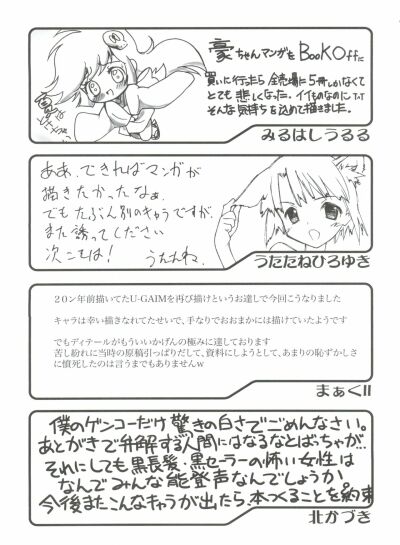 豪ちゃんマンガをBooKOffに
買いに行ったら全売場に5冊しかなくて
とても悲しくなった。イイものなのに…って
そんな気持ちを込めて描きました。
みるはしうるる
ああ、できればマンガが
描きたかったなぁ。
でもたぶん別のキャラですが、
また誘ってください
次こそは! うたたね.
うたたねひろゆき
20ン年前描いてたU-GAIMを再び描けというお達しで今回こうなりました
キャラは幸い描きなれてたせいで、手なりでおおまかには描けていたようです
でもディテールがもういいかげんの極みに達しております
苦し紛れに当時の原稿引っぱりだして、資料にしようとして、あまりの恥ずかしさ
に憤死したのは言うまでもありませんw
まぁくII
僕のゲンコーだけ驚きの白さでごめんなさい。
あとがきで弁解する人間にはなるなとばっちゃが…
それにしても黒長髪・黒セーラーの怖い女性は
なんでみんな能登声なんでしょうか。
今後またこんなキャラが出たら、本つくることを約束
北かづき